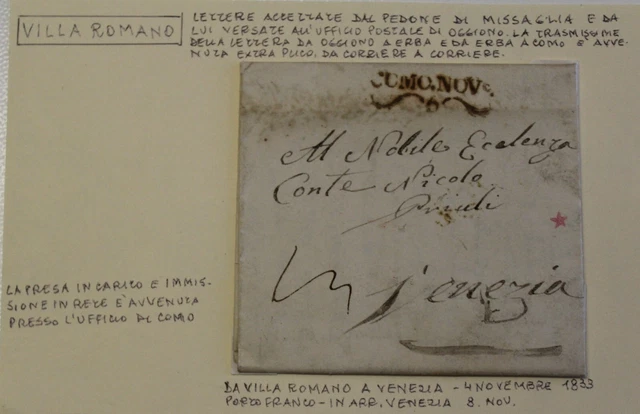 VILLA ROMANO
LETTERE ACCETTATE DAL PEDONE DI MISSAGLIA E DA
LUI VERSATE ALL'UFFICIO POSTALE DI OGGIONO. LA TRASMISSIONE
DELLA LETTERA DA OGGIONO A ERBA E DA ERBA A COMO E' AVVE-
NUTA EXTRA PLICO, DA CORRIERE A CORRIERE.
COMO. NOVe.
6
Al Nobile Ecelenza
Conte Nicolo
Priuli
Venezia
LA PRESA IN CARICO E IMMIS-
SIONE IN RETE E' AVVENUTA
PRESSO L'UFFICIO DI COMO
DA VILLA ROMANO A VENEZIA - 4 NOVEMBRE 1833
PORTO FRANCO - IN ARR. VENEZIA 8. NOV.